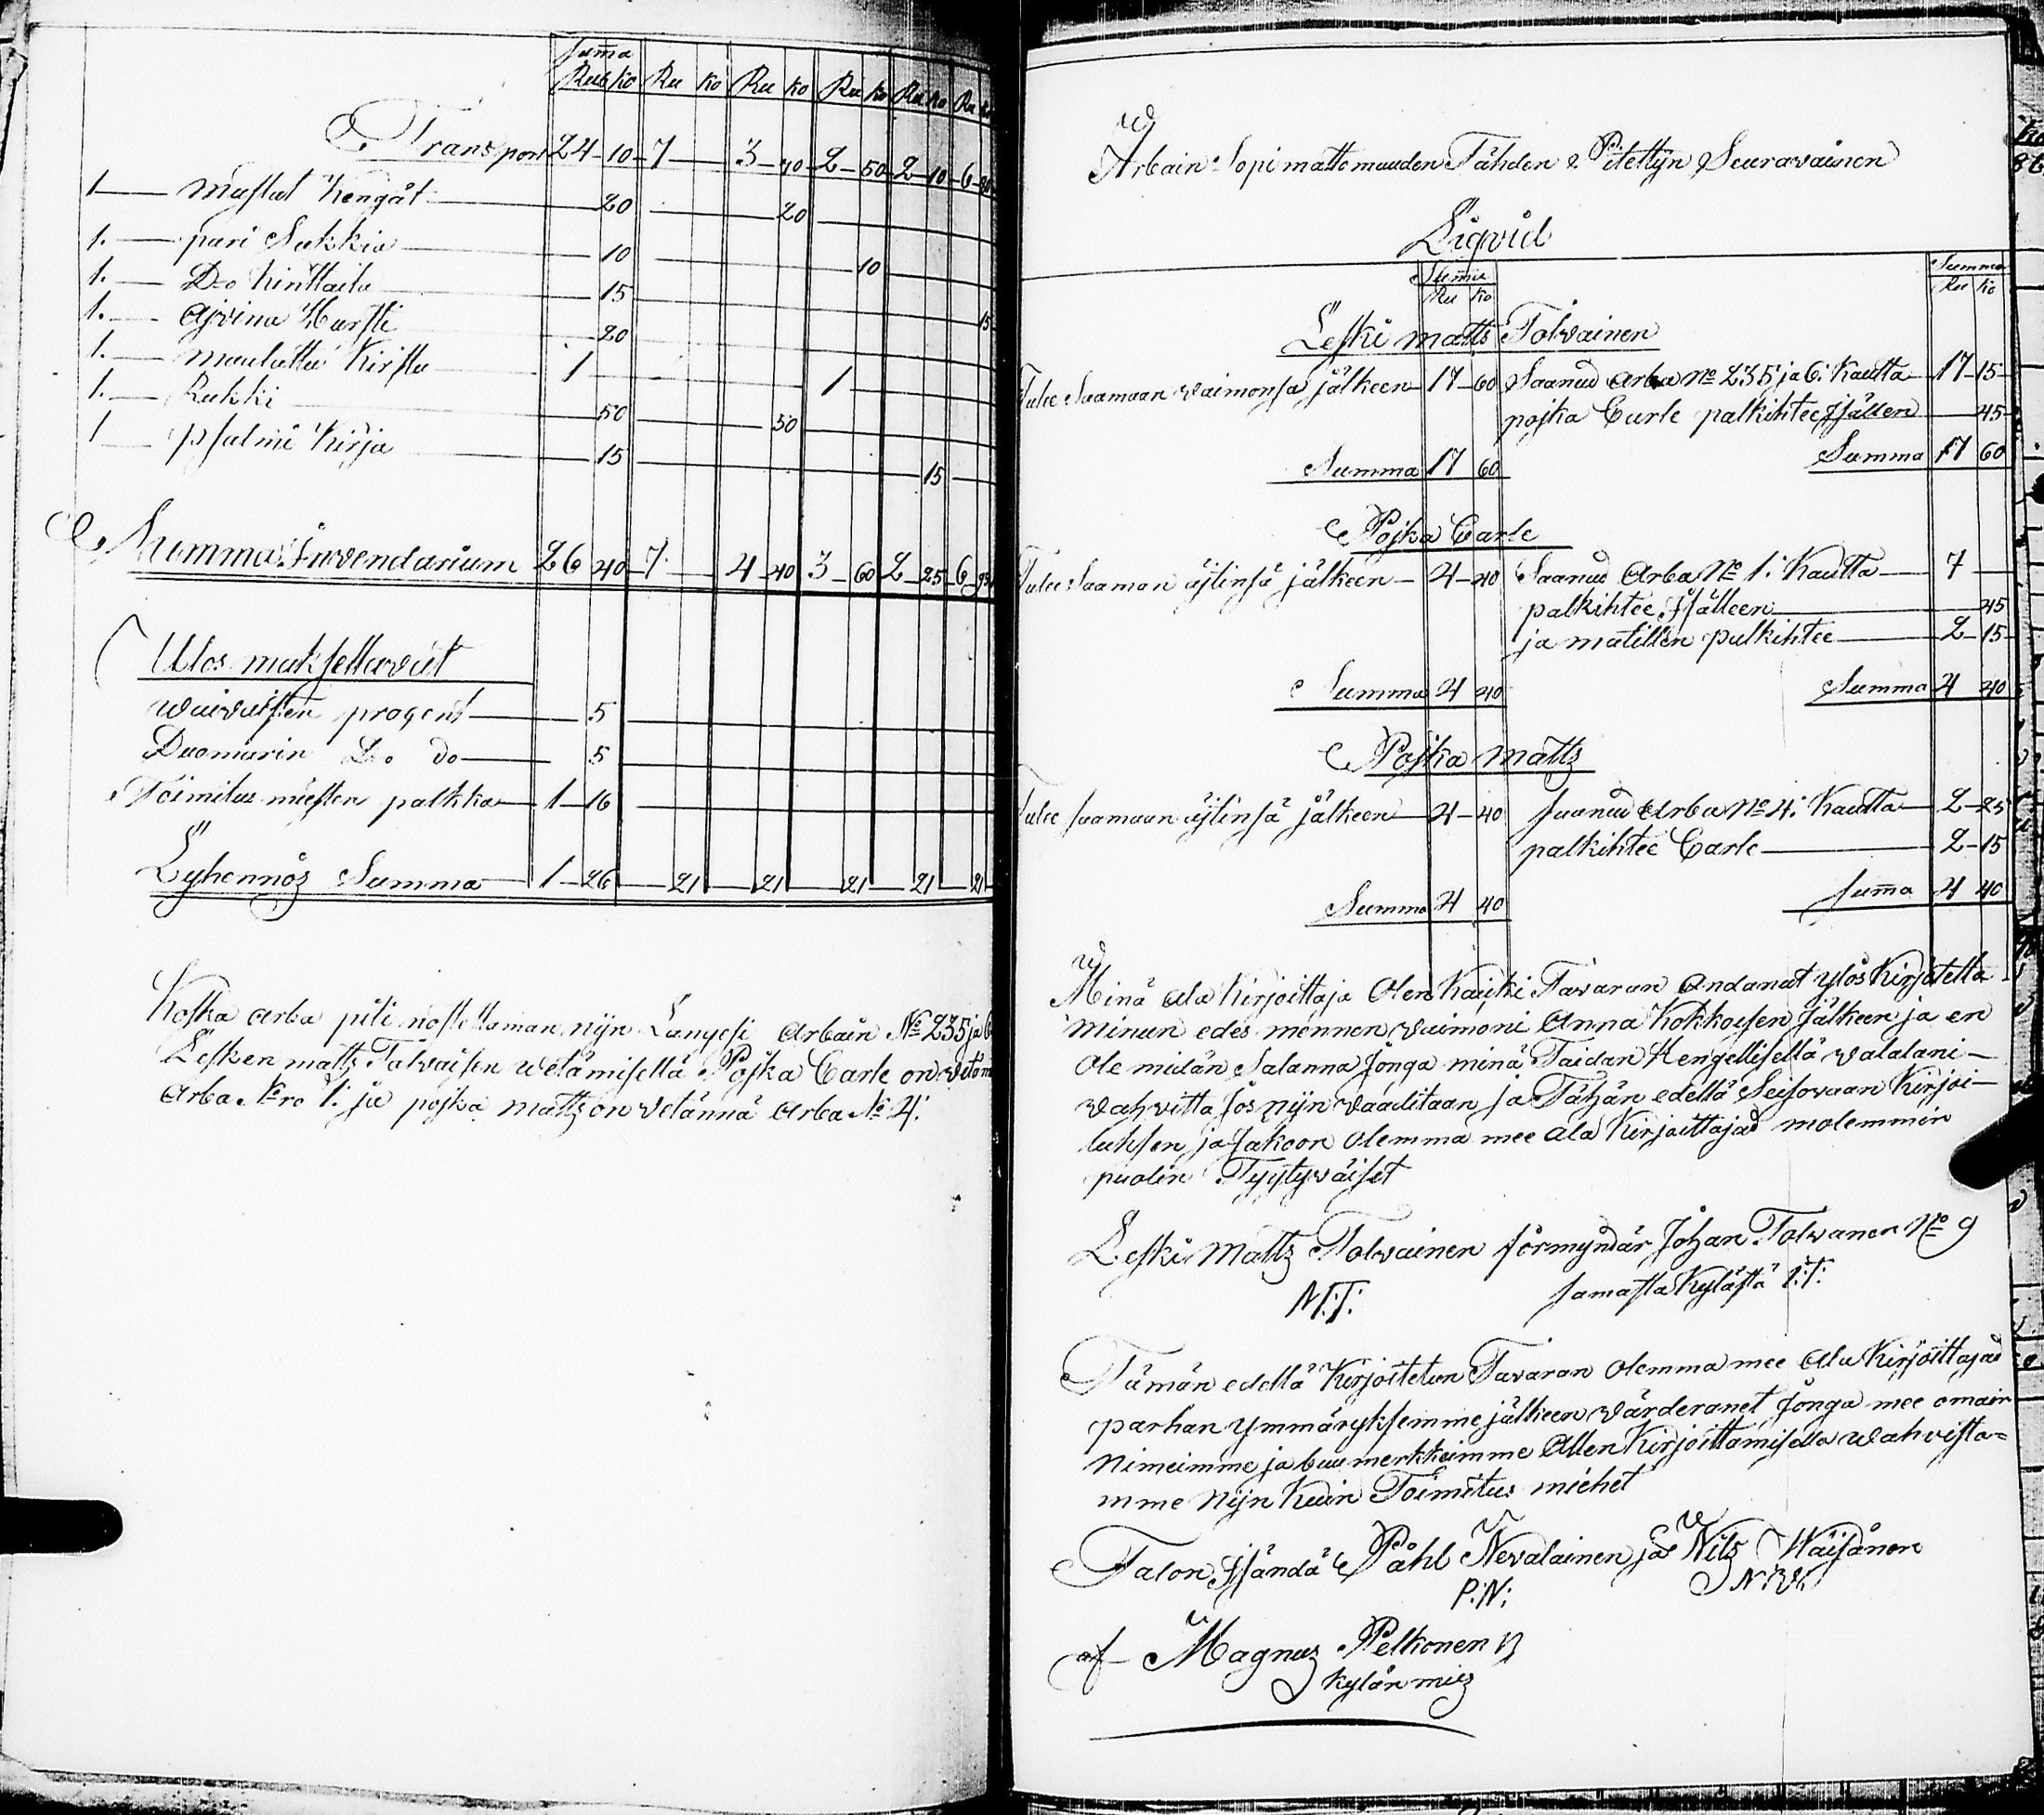 Suma
Rub ko Ru ko Ru ko Ru ko Ru ko Ru
Transport 24 10 7 3 40 2 50 2 10 6
1 Mustat Kengät 20 20
1. pari Sukkia 10 10
1. Do Kinttaita 15 15
1. Ajvina Hursti 20
1. maalattu Kirstu 1 1
1. Rukki 50 50
1 psalmi Kirja 15 15
Summa Invendarium 26 40 7 4 40 3 60 2 25 6
Ulos maksettavat
waivaisten procent 5
Duomarin Do do 5
Toimitus miesten palkka 1 16
Lyhennös Summa 1 26 21 21 21 21 21
Koska arba piti nostettaman nijn Langesi Arbain No 2 3 5 ja 6
Lesken matts Tolvaisen wetämisellä Pojka Carle on
Arba Nro 1: ja pojka matts on vetännä Arba No 4:
Arbain Sopimattomuuden Tähden Pitettijn Seuravainen
Liqvid
Summa Summa
Ru ko Ru ko
Leski matts Tolvainen
Tulee Saamaan vaimonsa jälkeen 17 60 Saanud Arba No 2 3 5 ja 6: Kautta 17 15
pojka Carle palkihtee Isällen 45
Summa 17 60 Summa 17 60
Pojka Carle
Tulee Saaman äjtinsä jälkeen 4 40 Saanud Arba No 1: Kautta 7
palkihtee Isälleen 45
ja matillen palkihtee 2 15
Summa 4 40 Summa 4 40
Pojka matts
Tulee saamaan äjtinsä jälkeen 4 40 saanud Arba No 4: Kautta 2 25
palkihtee Carle 2 15
Summa 4 40 Suma 4 40
Minä ala Kirjoittaja Olen Kaicki Tavaran Andanut ylös Kirjotetta
minun edes mennen Vaimoni Anna Kokkoisen Jälkeen ja en
Ole mitän Salanna Jonga minä Taidan Hengellisellä Valalani
vahvitta Jos nijn Vaaditaan ja Tähän edellä Seisovaan Kirjoi-
tuksen ja Jakoon Olemma mee ala Kirjoittajad molemmin
puolin Tyytyväiset
Leski Matts Tolvainen förmyndär Johan Tolvanen No 9
M:T: samasta Kylästä I:T:
Tämän edellä Kirjoitetun Tavaran Olemma mee Ala Kirjoittajad
parhan Ymmäryksemme jälkeen Värderanet Jonga mee omain
Nimeimme ja buumerkkeimme Allen Kirjoittamisella Wahvista=
mme Nijn Kuin Toimitus miehet
Talon Isändä Påhl Nevalainen ja Nils Wäisänen
P:N: N:W:
af Magnus Pelkonen
Kylän mies